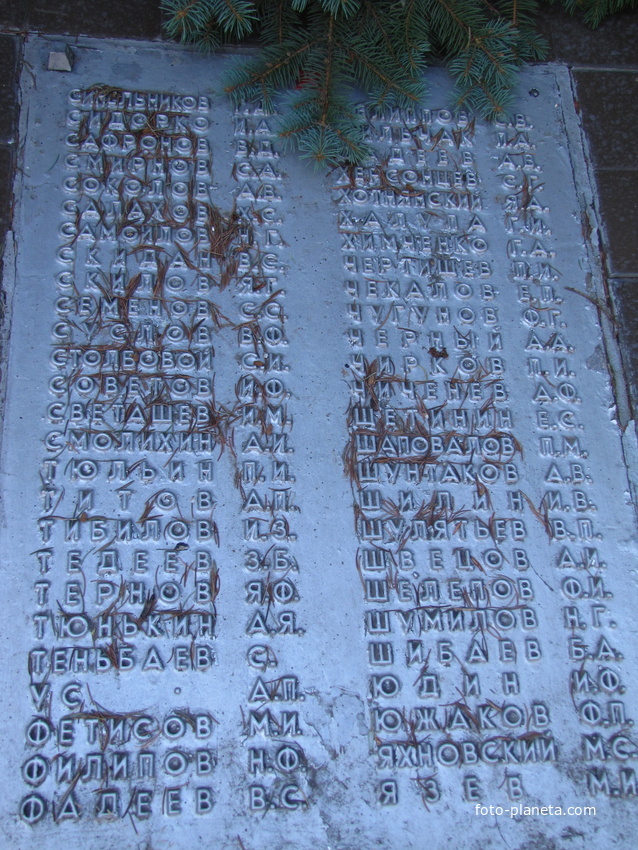 СИМЕЛЬНИКОВ
СИДОРКО И.А.
САФРОНОВ В.Д.
СМИРНОВ С.А.
СОКОЛОВ А.В.
САЛАХОВ Х.С.
САМОЙЛОВ Н.Г.
СКИДАН В.С.
СКИЛОВ Я.Г.
СЕМЕНОВ С.С.
СУСЛОВ В.Ф.
СТОЛБОВОЙ С.И.
СОВЕТОВ И.Ф.
СВЕТАШЕВ И.М.
СМОЛИХИН А.И.
ТЮЛЬИН П.И.
ТИТОВ А.П.
ТИБИЛОВ И.З.
ТЕДЕЕВ З.Б.
ТЕРНОВ Я.Ф.
ТЮНЬКИН А.Я.
ТЕНЬБАЕВ С.
УС А.П.
ФЕТИСОВ М.И.
ФИЛИПОВ Н.Ф.
ФАДЕЕВ В.С.
С.В.
П.А.
ДЕЕВ А.В.
ХЕРСОНЦЕВ
ХОТНЯНСКИЙ Я.А.
ХАЛУПА Г.И.
ХИМЧЕНКО Г.А.
ЧЕРТИЩЕВ П.И.
ЧЕКАЛОВ Е.П.
ЧУГУНОВ Ф.Г.
ЧЕРНЫЙ А.А.
ЧИРКОВ П.И.
НИЧЕНЕВ Д.Ф.
ЩЕТИНИН Е.С.
ШАПОВАЛОВ П.М.
ШУНТАКОВ А.В.
ШИЛИН И.В.
ШУЛЯТЬЕВ В.П.
ШВЕЦОВ А.И.
ШЕЛЕПОВ Ф.И.
ШУМИЛОВ Н.Г.
ШИБАЕВ Б.А.
ЮДИН И.Ф.
ЮЖАКОВ Ф.П.
ЯХНОВСКИЙ М.С.
ЯЗЕВ М.И
foto-planeta.com